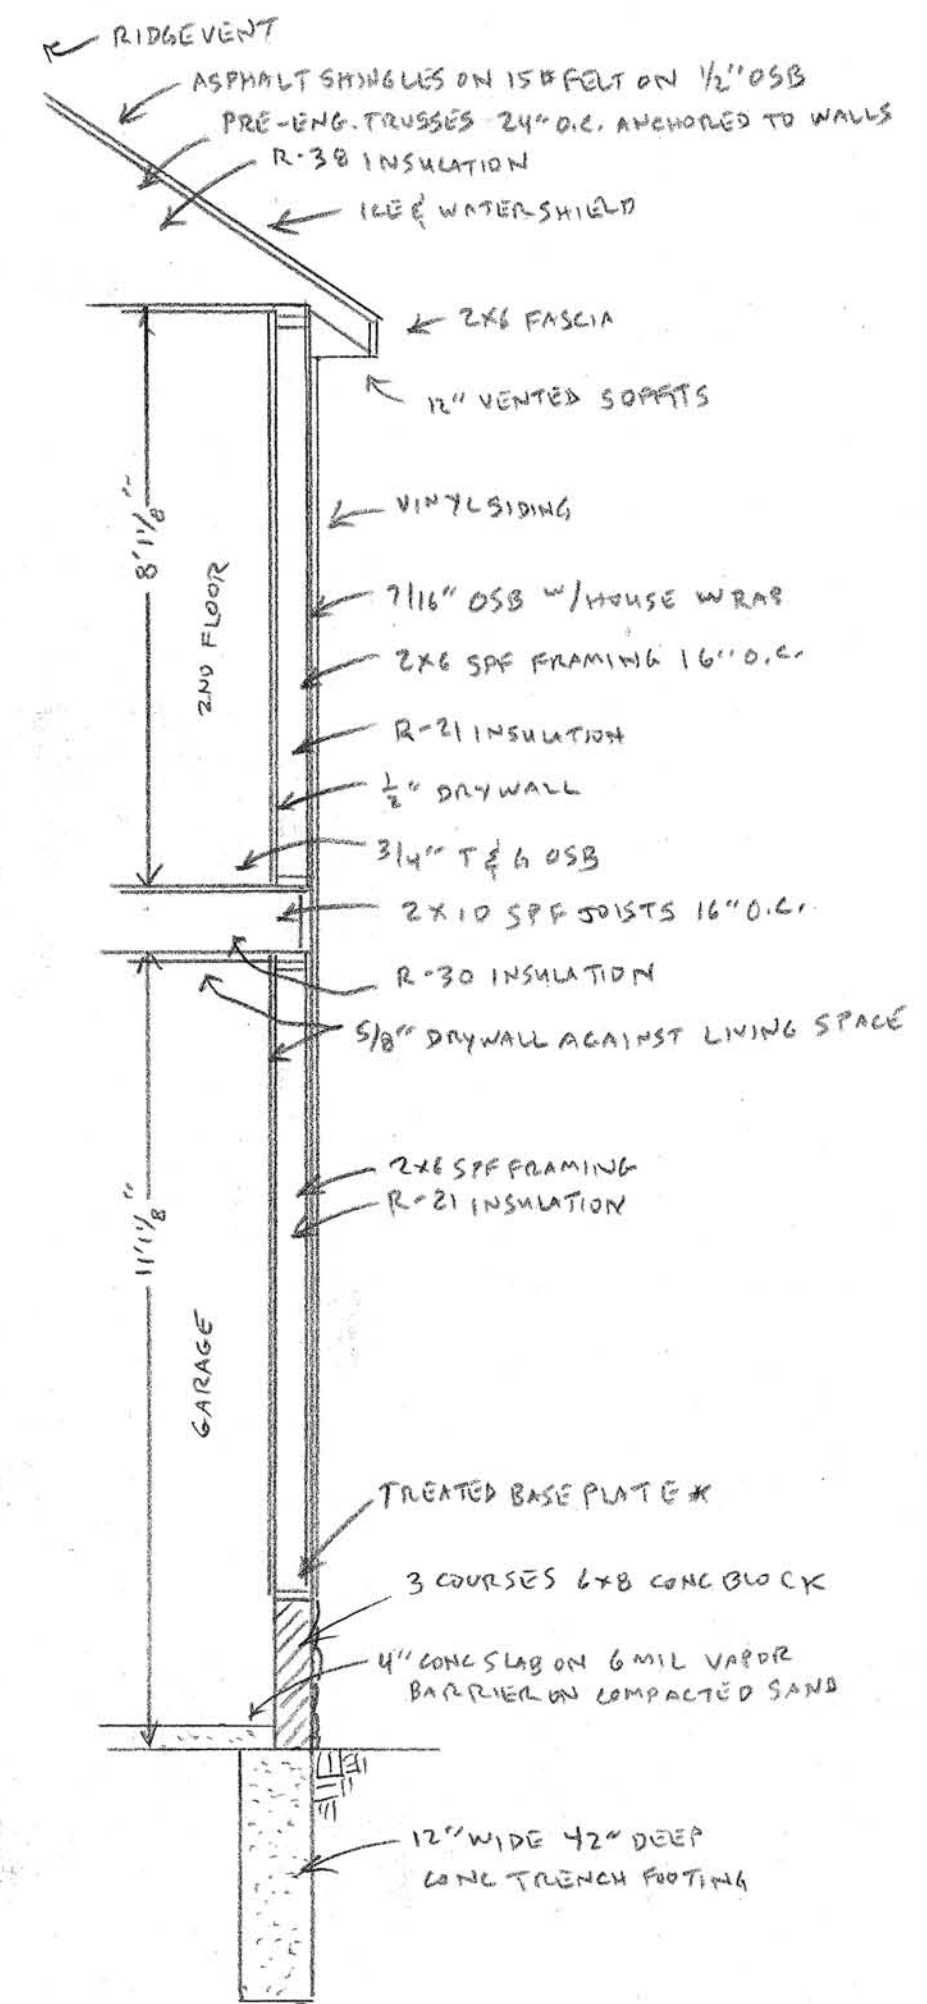 RIDGEVENT
ASPHALT SHINGLES ON 15# FELT ON 1/2" OSB
PRE-ENG. TRUSSES 24" O.C. ANCHORED TO WALLS
R-38 INSULATION
ICE & WATER SHIELD
2X6 FASCIA
12" VENTED SOFFITS
VINYL SIDING
8'1 1/8"
2ND FLOOR
7/16" OSB W/HOUSE WRAP
2X6 SPF FRAMING 16" O.C.
R-21 INSULATION
1/2" DRYWALL
3/4" T & G OSB
2X10 SPF JOISTS 16" O.C.
R-30 INSULATION
5/8" DRYWALL AGAINST LIVING SPACE
2X6 SPF FRAMING
R-21 INSULATION
11'1 1/8"
GARAGE
TREATED BASE PLATE *
3 COURSES 6X8 CONC BLOCK
4" CONC SLAB ON 6 MIL VAPOR
BARRIER ON COMPACTED SAND
12" WIDE 42" DEEP
CONC TRENCH FOOTING